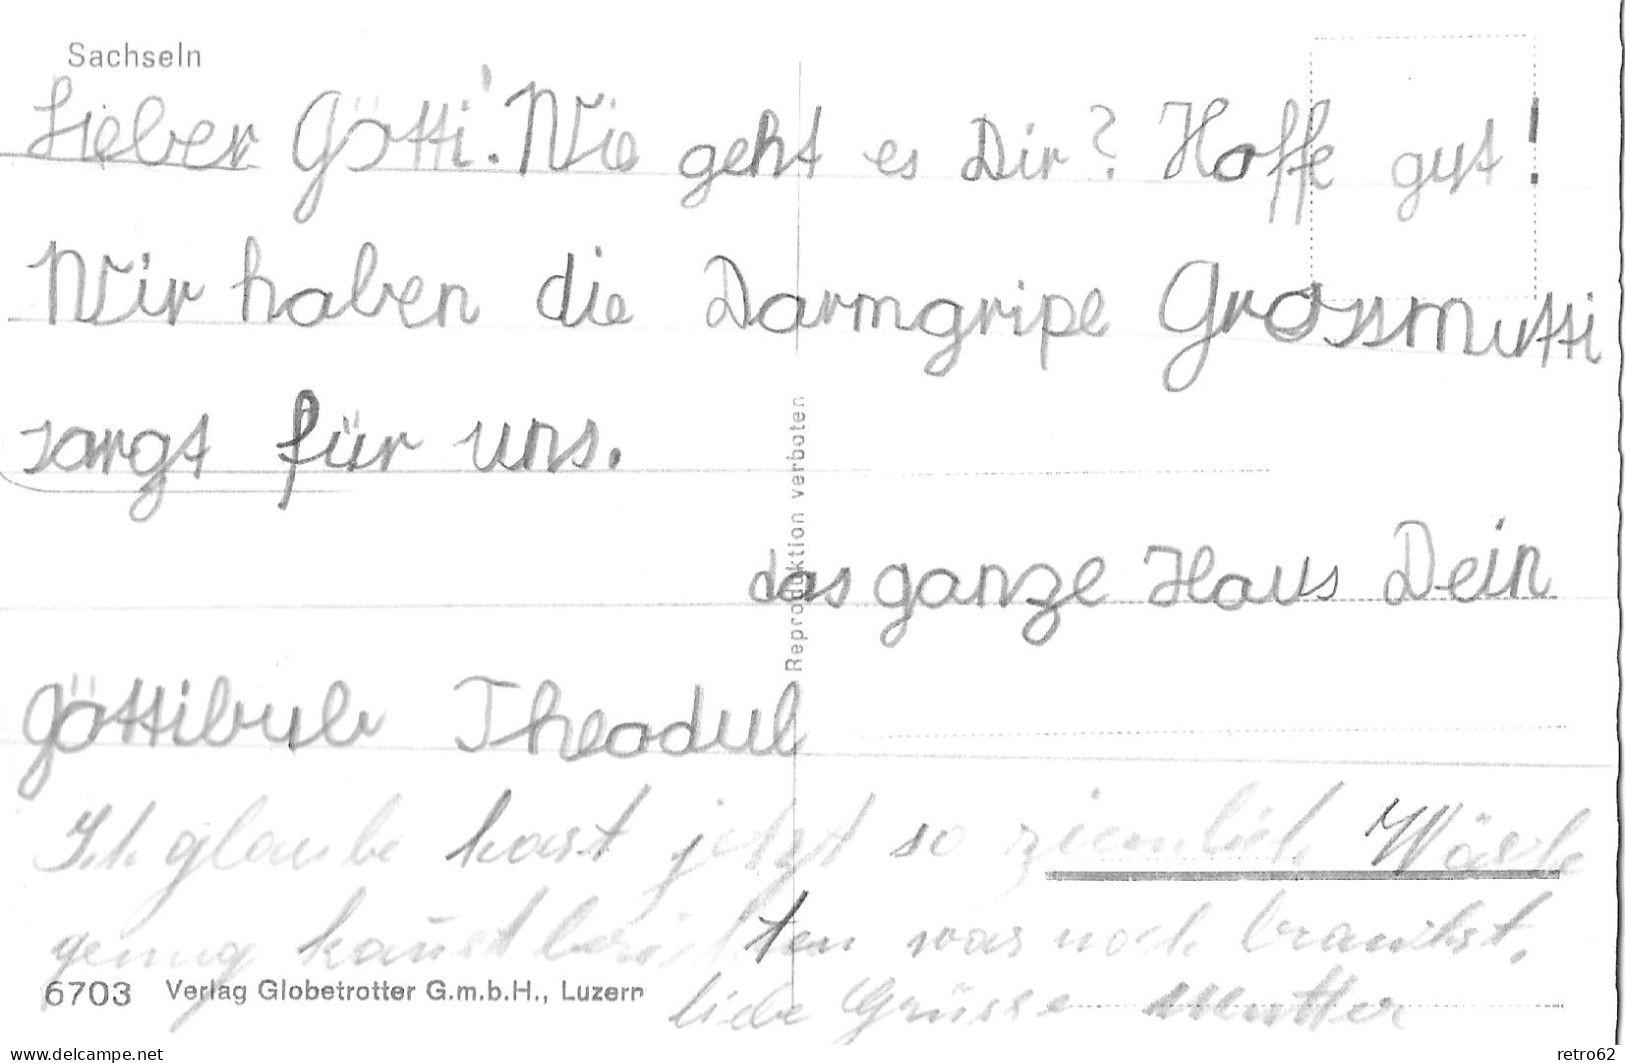 Sachseln
Lieber Götti! Wie geht es Dir? Hoffe gut!
Wir haben die Darmgripe Grossmutti
sorgt für uns.
das ganze Haus Dein
Göttibub Theodul
Reproduktion verboten
Ich glaube hast jetzt so ziemlich Wäsche
genug kannst berichten was noch brauchst.
6703 Verlag Globetrotter G.m.b.H., Luzern
liebe Grüsse Mutter
www.delcampe.net
retro62